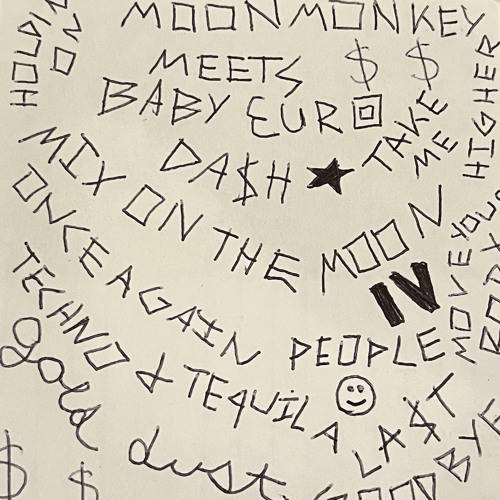 HOLDIN ON
MOONMONKEY
MEETS $ $
BABY EURO
DA$H ★
TAKE ME HIGHER
MIX ON THE MOON
IV
ONCE AGAIN PEOPLE
MOVE YOUR BODY
TECHNO & TEQUILA
LA$T
GOODBYE
gold dust
$ $